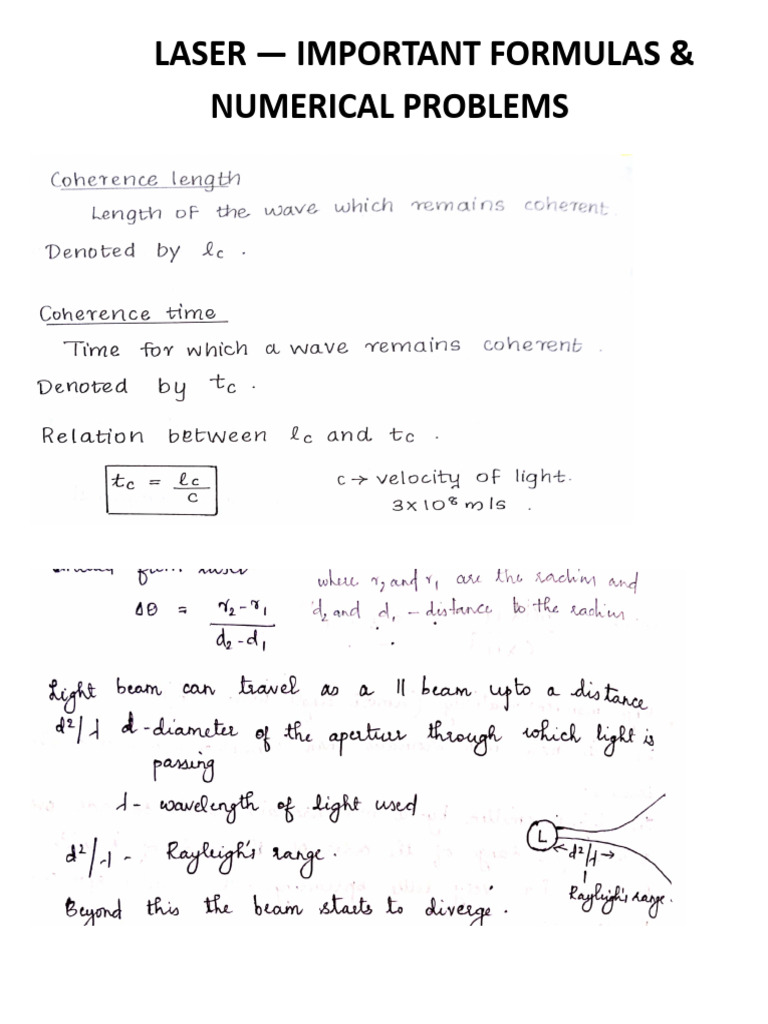 LASER — IMPORTANT FORMULAS &
NUMERICAL PROBLEMS
Coherence length
Length of the wave which remains coherent.
Denoted by lc .
Coherence time
Time for which a wave remains coherent .
Denoted by tc .
Relation between lc and tc .
tc = lc/c
c → velocity of light.
3×10⁸ m/s .
where r2 and r1 are the radius and
Δθ = r2-r1/d2-d1
d2 and d1 - distance to the radius.
Light beam can travel as a || beam upto a distance
d²/λ d - diameter of the aperture through which light is
passing
λ - wavelength of light used
d²/λ - Rayleigh's range .
L
d²/λ
Rayleigh's range .
Beyond this the beam starts to diverge .